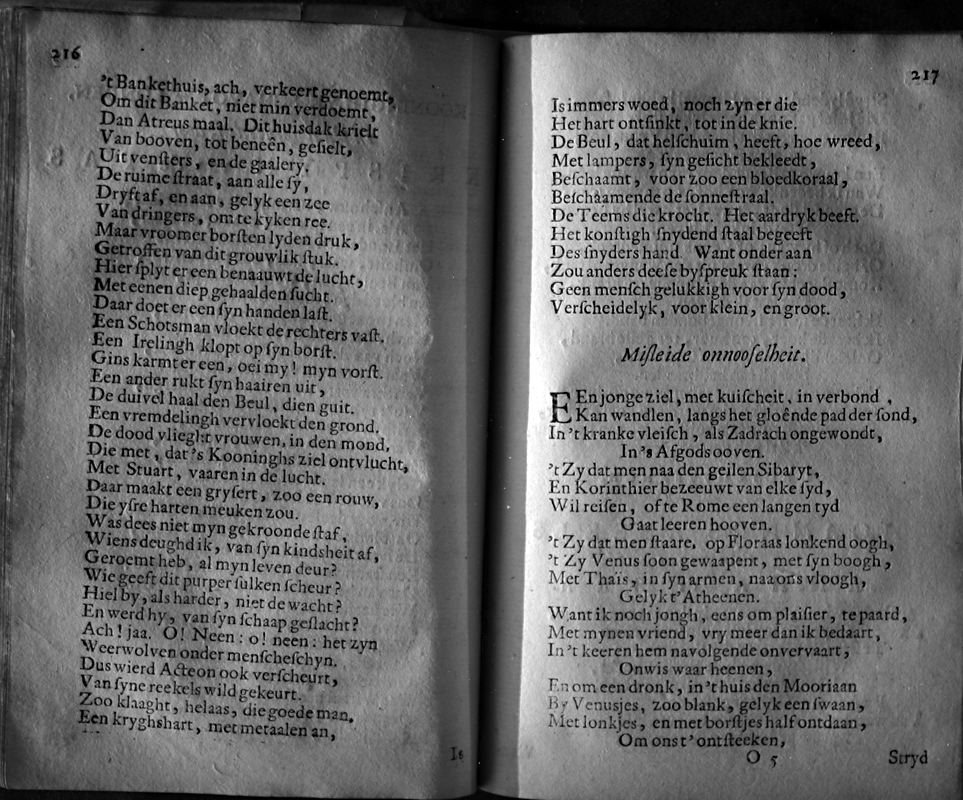 216
'tBankethuis, ach, verkeert genoemt,
Om dit Banket, niet min verdoemt,
Dan Atreus maal. Dit huisdak krielt
Van booven, tot beneên, gesielt,
Uit vensters, en de gaalery.
De ruime straat, aan alle sy,
Dryft af, en aan, gelyk een zee
Van dringers, om te kyken ree.
Maar vroomer borsten lyden druk,
Getroffen van dit grouwlik stuk.
Hier splyt er een benaauwt de lucht,
Met eenen diep gehaalden sucht.
Daar doet er een syn handen last.
Een Schotsman vloekt de rechters vast.
Een Irelingh klopt op syn borst.
Gins karmt er een, oei my! myn vorst.
Een ander rukt syn haairen uit,
De duivel haal den Beul, dien guit.
Een vremdelingh vervloekt den grond.
De dood vlieght vrouwen, in den mond,
Die met, dat 's Kooninghs ziel ontvlucht,
Met Stuart, vaaren in de lucht.
Daar maakt een grysert, zoo een rouw,
Die ysre harten meuken zou.
Was dees niet myn gekroonde staf,
Wiens deughd ik, van syn kindsheit af,
Geroemt heb, al myn leven deur?
Wie geeft dit purper sulken scheur?
Hiel hy, als harder, niet de wacht?
En werd hy, van syn schaap geslacht?
Ach! jaa. O! Neen: o! neen: het zyn
Weerwolven onder menscheschyn.
Dus wierd Acteon ook verscheurt,
Van syne reekels wild gekeurt.
Zoo klaaght, helaas, die goede man.
Een kryghshart, met metaalen an,
Is
217
Is immers woed, noch zyn er die
Het hart ontsinkt, tot in de knie.
De Beul, dat helschuim, heeft, hoe wreed,
Met lampers, syn gesicht bekleedt,
Beschaamt, voor zoo een bloedkoraal,
Beschaamende de sonnestraal.
De Teems die krocht. Het aardryk beeft.
Het konstigh snydend staal begeeft
Des snyders hand. Want onder aan
Zou anders deese byspreuk staan:
Geen mensch gelukkigh voor syn dood,
Verscheidelyk, voor klein, en groot.
Misleide onnooselheit.
EEn jonge ziel, met kuischeit, in verbond,
Kan wandlen, langs het gloênde pad der sond,
In 't kranke vleisch, als Zadrach ongewondt,
In 's Afgods ooven.
't Zy dat men naa den geilen Sibaryt,
En Korinthier bezeeuwt van elke syd,
Wil reisen, of te Rome een langen tyd
Gaat leeren hooven.
't Zy dat men staare, op Floraas lonkend oogh,
't Zy Venus soon gewaapent, met syn boogh,
Met Thaïs, in syn armen, naa ons vloogh,
Gelyk t' Atheenen.
Want ik noch jongh, eens om plaisier, te paard,
Met mynen vriend, vry meer dan ik bedaart,
In 't keeren hem navolgende onvervaart,
Onwis waar heenen,
En om een dronk, in 't huis den Mooriaan
By Venusjes, zoo blank, gelyk een swaan,
Met lonkjes, en met borstjes half ontdaan,
Om ons t' ontsteeken,
O 5
Stryd